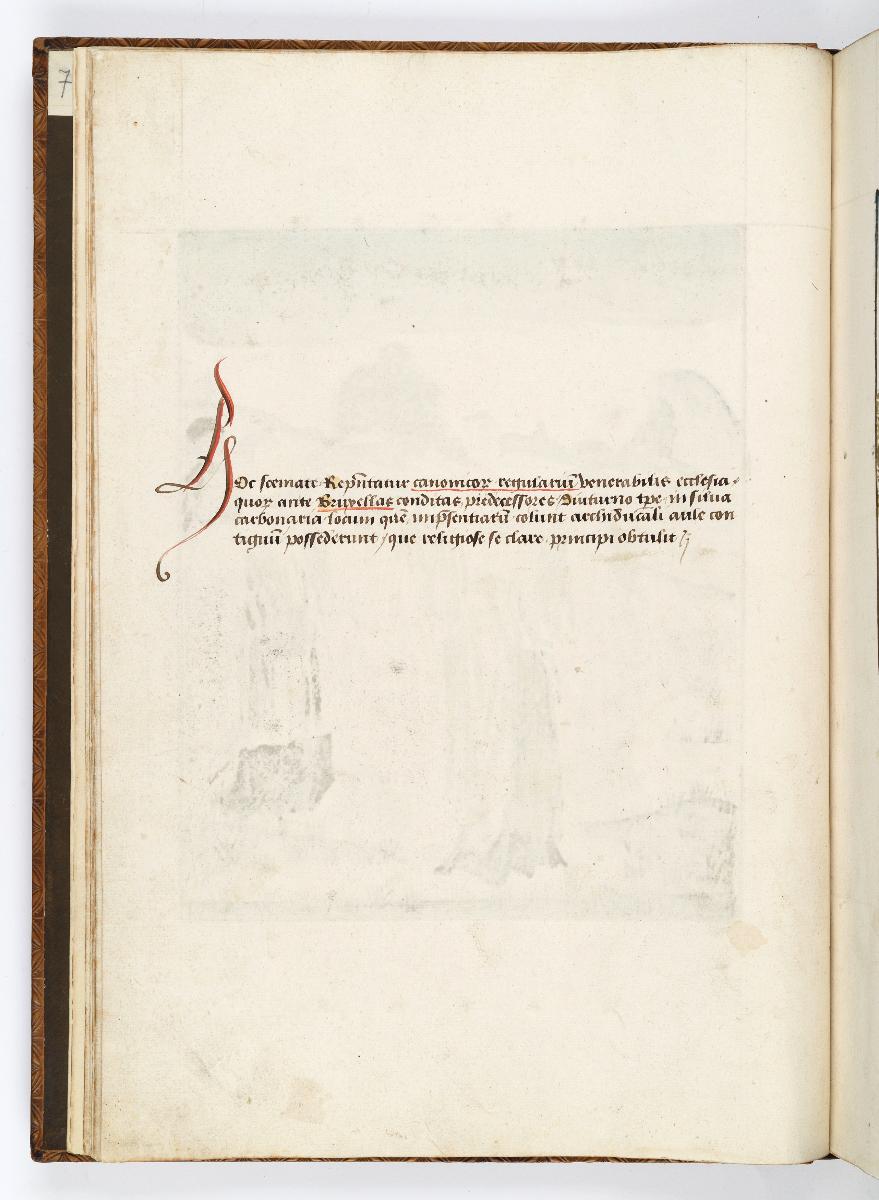 7
Hoc scemate Rep̃ntatur canonicoꝝ regulariũ venerabilis ecclesia
quoꝝ ante Bruxellas conditas predecessores diuturno tp̃e in silua
carbonaria locum quẽ imp̃sentiarũ colunt archiducali aule con
tiguũ possederunt / que religiose se clare principi obtulit